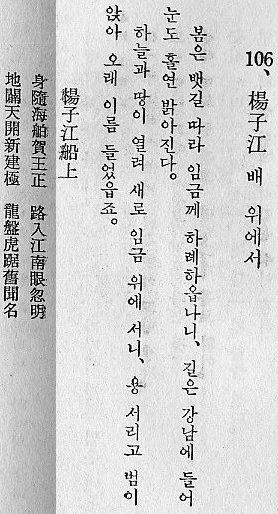 106、楊子江 배 위에서
봄은 뱃길 따라 임금께 하례하옵나니、길은 강남에 들어
눈도 홀연 밝아진다。
하늘과 땅이 열려 새로 임금 위에 서니、용 서리고 범이
앉아 오래 이름 들었읍죠。
楊子江船上
身隨海舶賀王正 路入江南眼忽明
地闢天開新建極 龍盤虎踞舊聞名